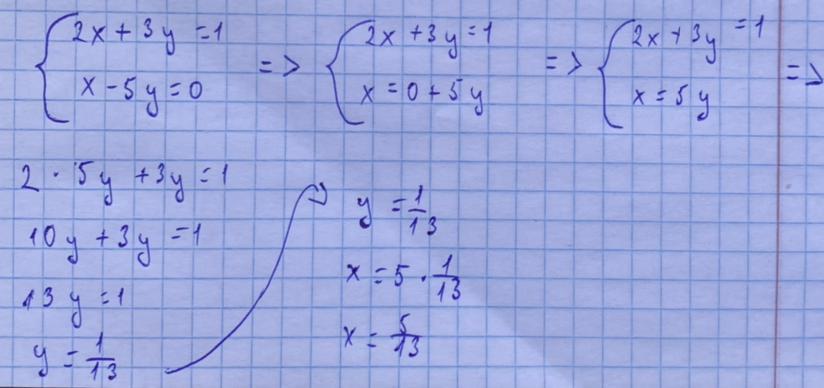 2x + 3y = 1 => 2x + 3y = 1 => 2x + 3y = 1 =>
x - 5y = 0 x = 0 + 5y x = 5y
2 · 5y + 3y = 1
10y + 3y = 1
13y = 1
y = 1/13
y = 1/13
x = 5 · 1/13
x = 5/13